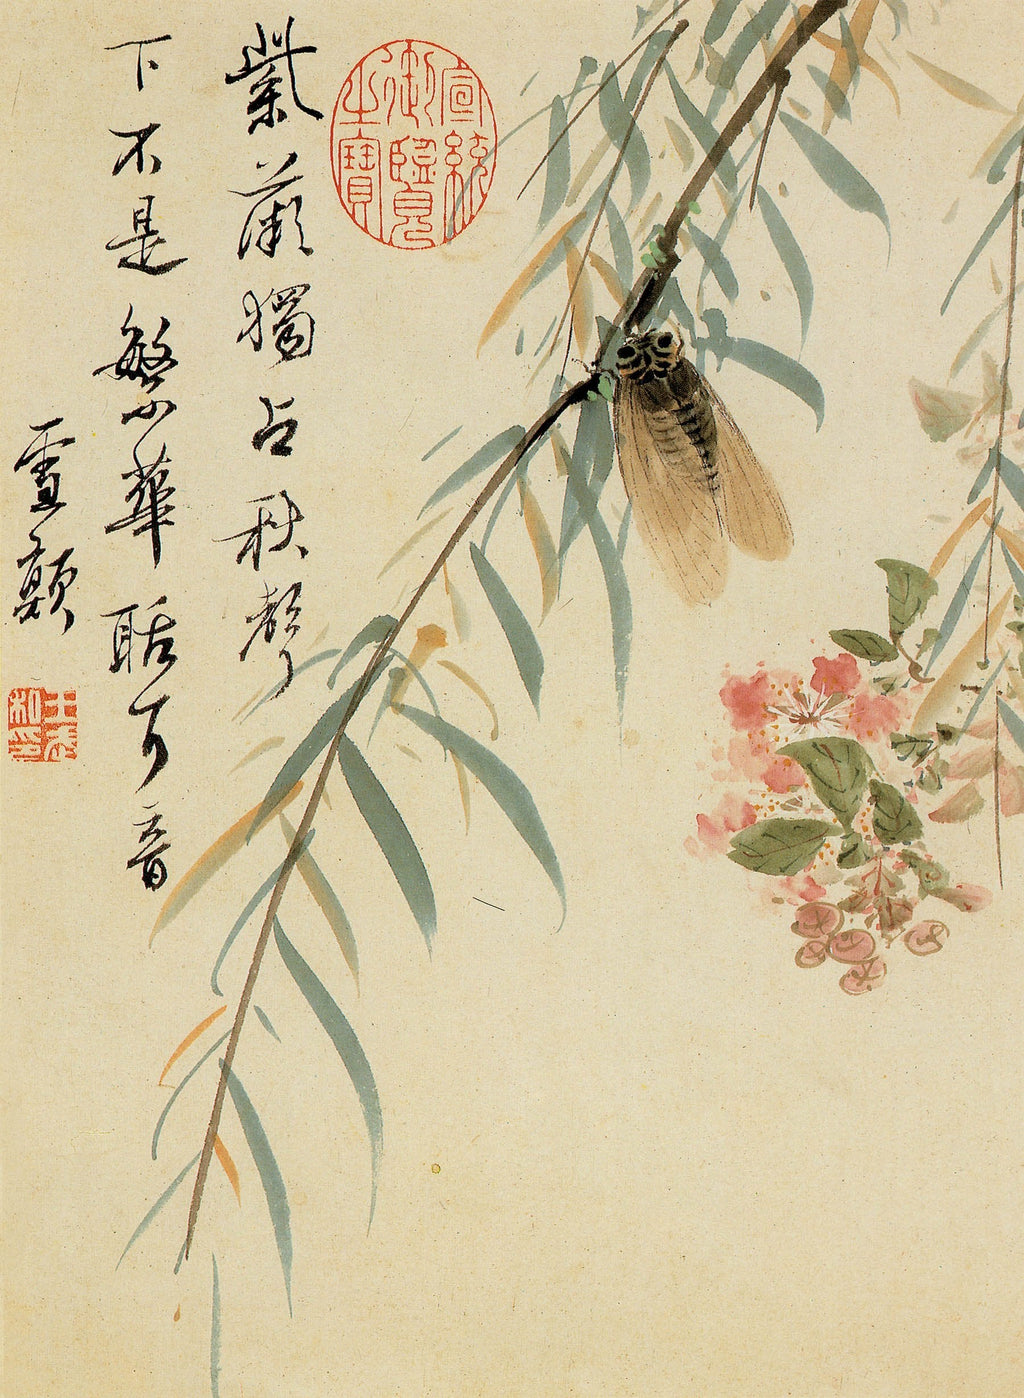 宣統
御覽
之寶
紫薇獨占秋聲
下不是繁華聒耳音
雪顛
王武
私印